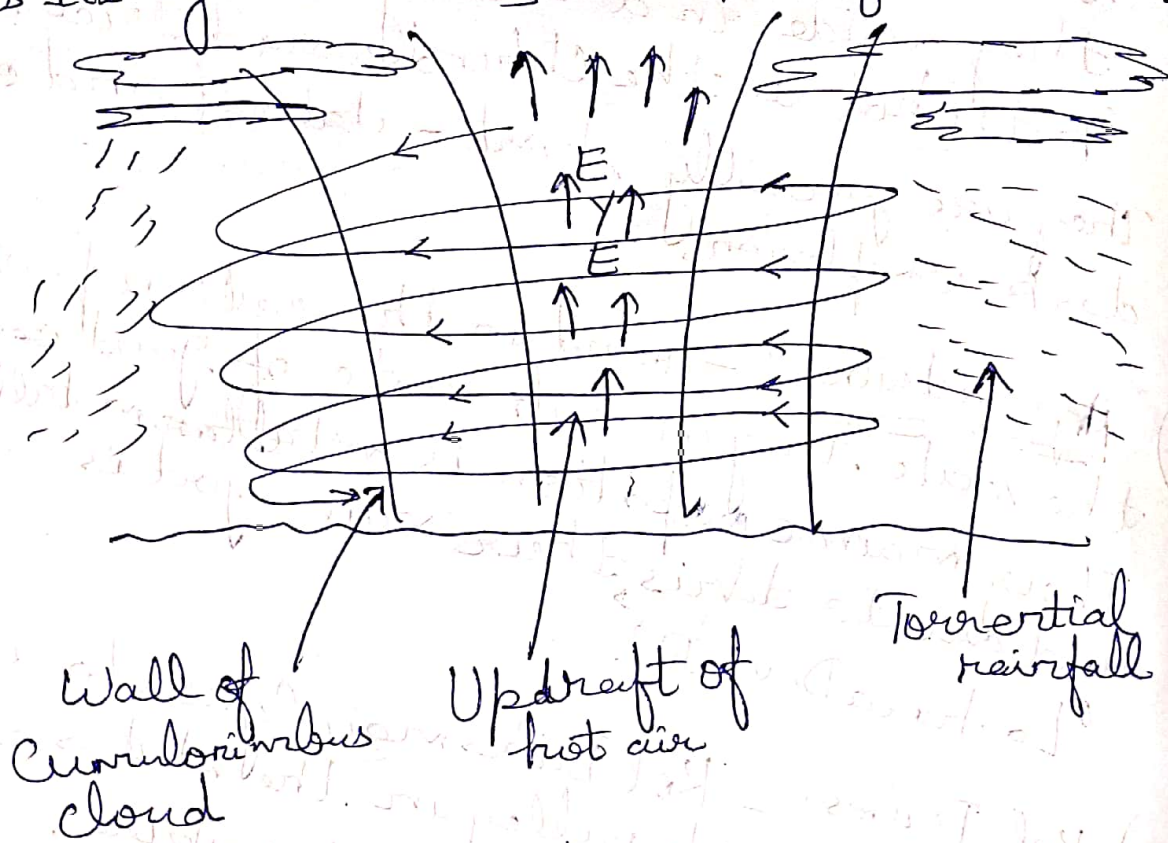 E
Y
E
Wall of
Cumulonimbus
cloud
Updraft of
hot air
Torrential
rainfall